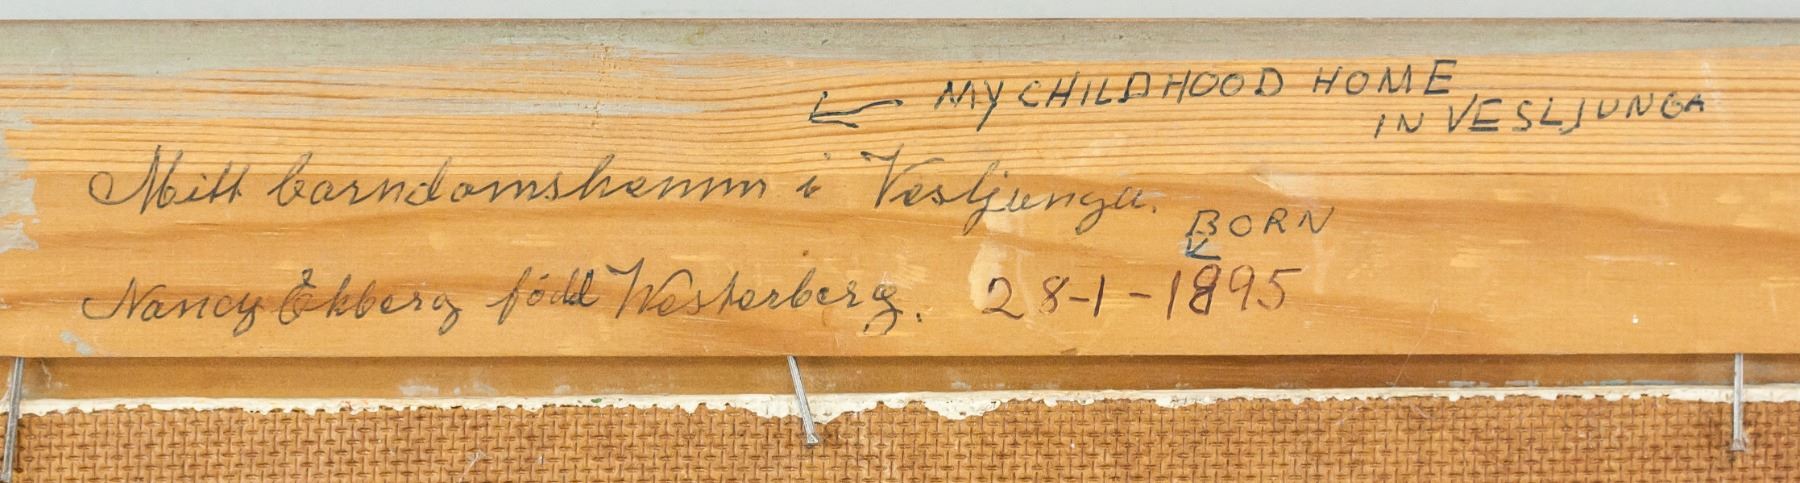 ← MY CHILDHOOD HOME
IN VESLJUNGA
Mitt barndomshemm i Vesljunga.
BORN
Nancy Ekberg född Westerberg. 28-1-1895